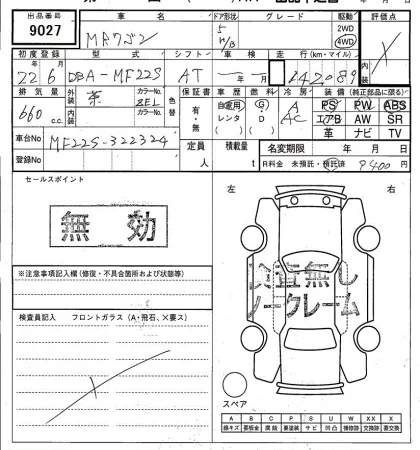 出品番号 車名 ドア形状 グレード 駆動 評価点
9027 MRワゴン 5 H/B 2WD 4WD ×
内装
初度登録 型式 シフト 車検 走行(km・マイル)
22年6月 DBA-MF22S AT 年 月 142089
排気量 外装 カラーNo. 色替 保証書 車歴 燃料 冷房 装備(純正部品に限る)
660 c.c. 茶 ZEL 有・無 自家用 レンタ ( ) G D ( ) A AC PS PW ABS
エアB AW SR
革 ナビ TV
内装 カラーNo.
車台No MF22S-322324 定員 人 積載量 t 名変期限 年 月 日
登録No R料金 未預託・預託済 9400円
セールスポイント
無効
※注意事項記入欄(修復・不具合箇所および状態等)
検査員記入 フロントガラス(A・飛石、×要ス)
×
左 右
検査無し
ノークレーム
スペア
A B C P S U W XX X
線キズ 要板金 腐蝕 要塗装 サビ 凹凸 補修跡 交換跡 要交換